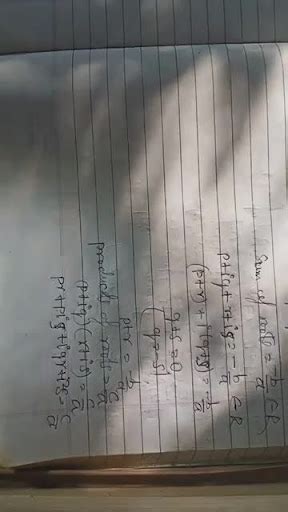 Sum of roots = -b/a ∈ R
p+iq + r+is = -b/a ∈ R
(p+r) + i(q+s) = -b/a
q+s = 0
q = -s
p+r = -b/a
product of roots = c/a
(p+iq)(r+is) = c/a
pr+pis+iqr-qs = c/a